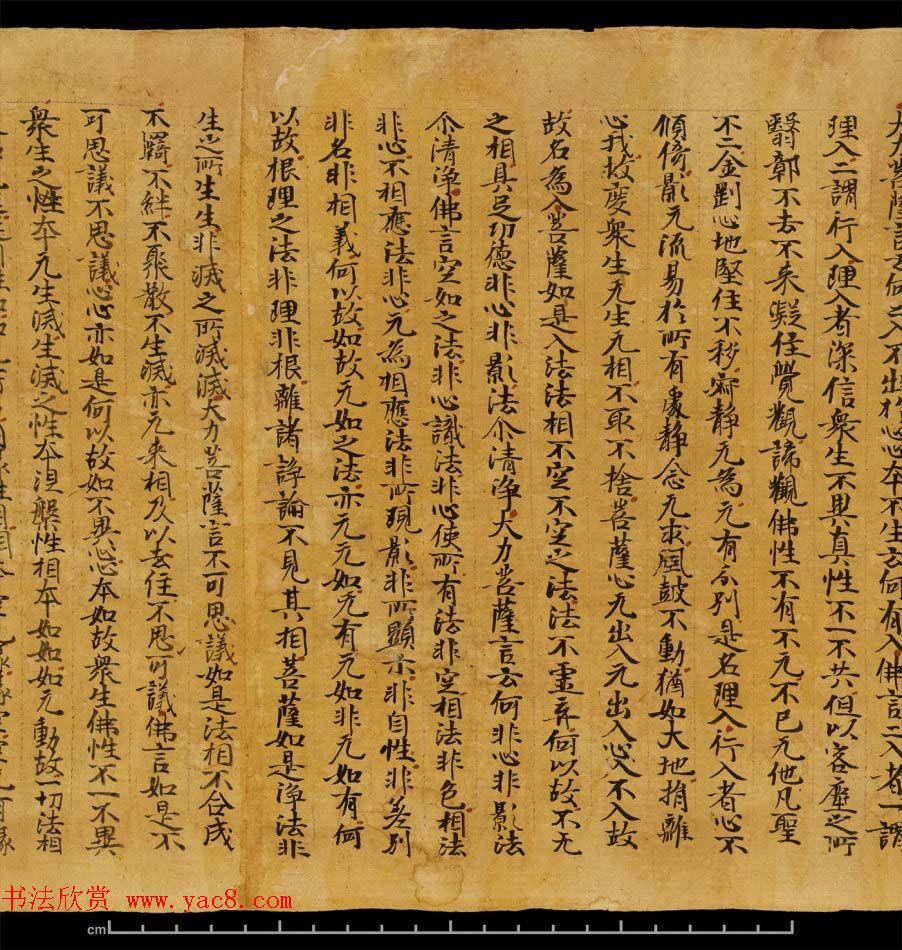 大力菩薩言云何之入不出於心心本不生云何有入佛言二入者一謂
理入二謂行入理入者深信衆生不異真性不一不共但以客塵之所
翳鄣不去不来凝住覺觀諦觀佛性不有不无不己无他凡聖
不二金剛心地堅住不移寂静无為无有分別是名理入行入者心不
傾倚影无流易於所有處静念无求風鼓不動猶如大地捐離
心我救度衆生无生无相不取不捨菩薩心无出入无出入心入不入故
故名為入菩薩如是入法法相不空不空之法法不虚弃何以故不无
之相具足功德非心非影法尒清浄大力菩薩言云何非心非影法
尒清浄佛言空如之法非心識法非心使所有法非空相法非色相法
非心不相應法非心无為相應法非所現影非所顯示非自性非差別
非名非相義何以故如故无如之法亦无无如无有无如非无如有何
以故根理之法非理非根離諸諍論不見其相菩薩如是浄法非
生之所生生非滅之所滅滅大力菩薩言不可思議如是法相不合成
不羇不絆不聚散不生滅亦无来相及以去住不思可議佛言如是不
可思議不思議心心亦如是何以故如不異心心本如故衆生佛性不一不異
衆生之性本无生滅生滅之性本涅槃性相本如如如无動故一切法相
书法欣赏 www.yac8.com
cm